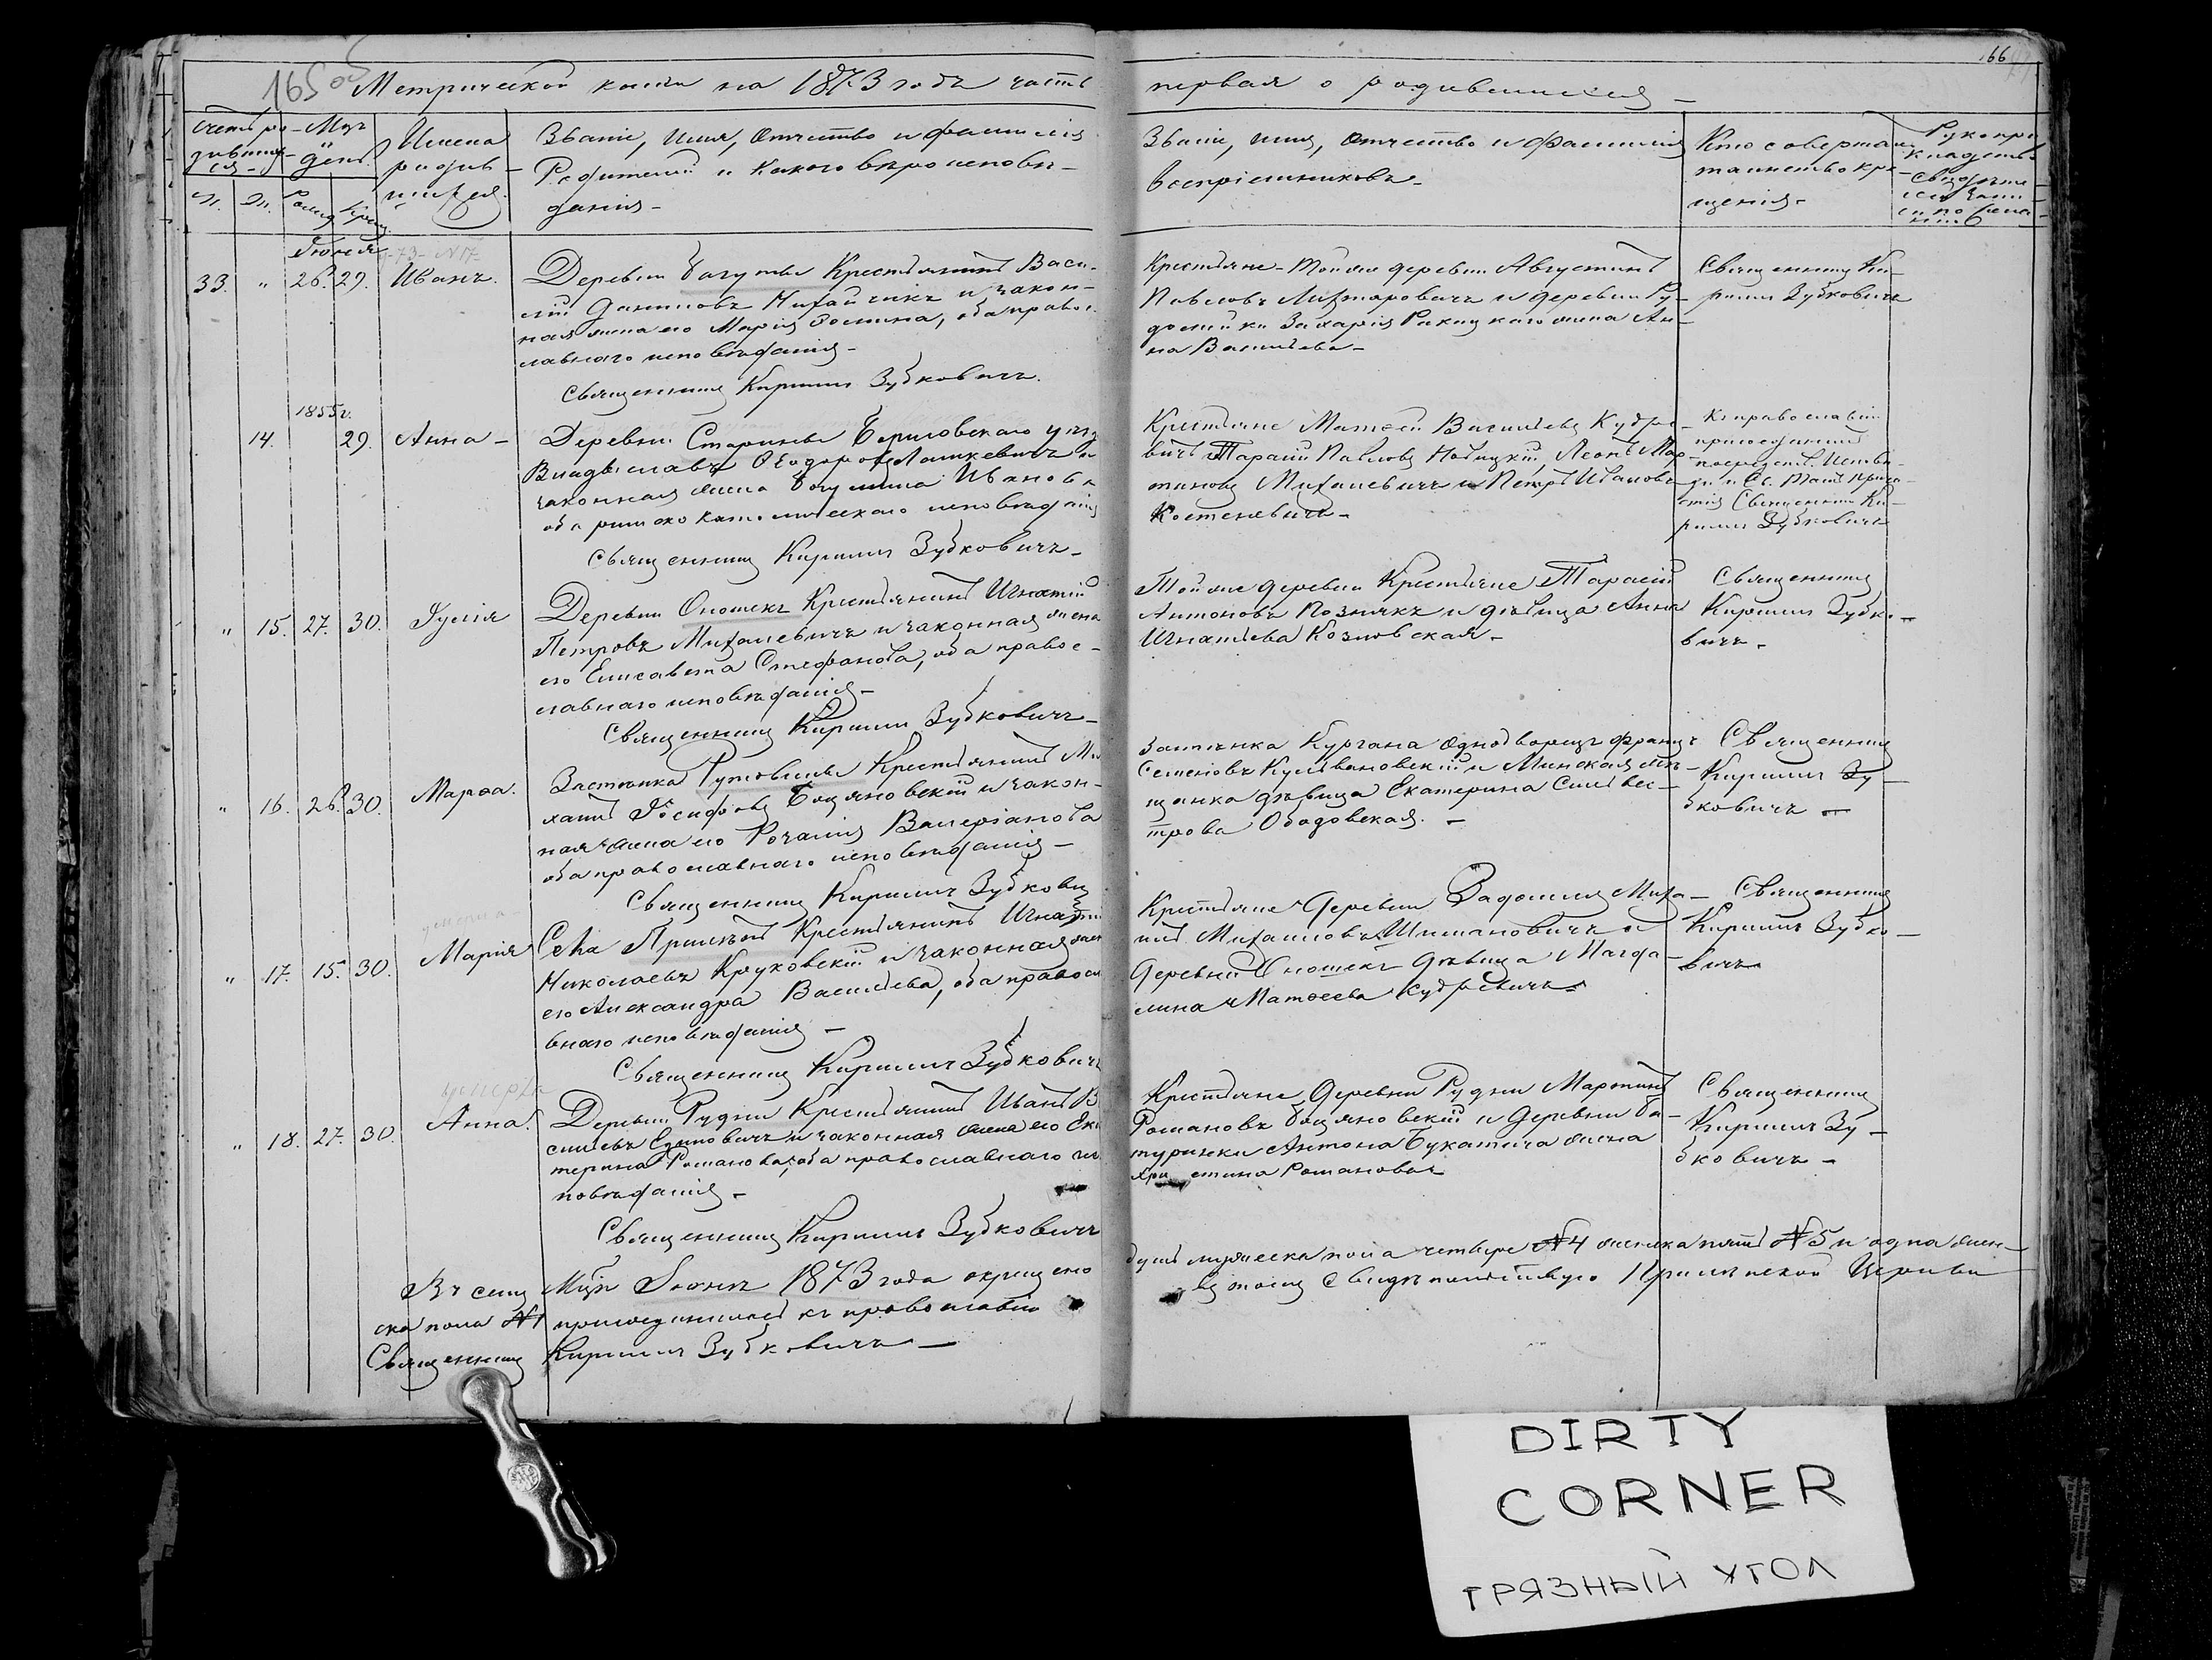 165 об
Метрической книги на 1873 годъ часть
первая о родившихся
166
Счетъ ро-
дивших-
ся
М. Ж.
Мцъ
день
Рожд. Крещ.
Имена
родив-
шихся.
Званіе, Имя, Отчество и фамилія
Родителей и Какого вѣроисповѣ-
данія
Званіе, имя, отчество и фамилія
воспріемниковъ
Кто совершалъ
таинство кре-
щенія
Рукопри-
кладство
Іюня
33. " 26. 29. Иванъ.
Деревни Багуты Крестьянинъ Васи-
лій Даниловъ Михайчикъ и закон-
ная жена его Марія Фомина, оба правос-
лавнаго исповѣданія
Священникъ Кириллъ Зубковичъ.
Крестьяне Той же деревни Августинъ
Павловъ и деревни Ру-
Захарія жена Ан-
на Васильева
Священникъ Ки-
риллъ Зубковичъ
1855 г.
14. 29. Анна
Деревни Старинки Борисовскаго уѣзда
Владыславъ Ѳеодоровъ Лашкевичъ и
законная жена Богумила Иванова
оба римско католическаго исповѣданія
Священникъ Кириллъ Зубковичъ
Крестьяне Матѳей Васильевъ Кудре-
вичъ Тарасій Павловъ Новицкій, Леонъ Мар-
тиновъ Михалевичъ и Петръ Ивановъ
Костеневичъ
Къ православію
присоединилъ
посредств. Исповѣ-
ди и Св. Таинъ прича-
стія Священникъ Ки-
риллъ Зубковичъ
" 15. 27. 30. Іулія
Деревни Оношекъ Крестьянинъ Игнатій
Петровъ Михалевичъ и законная жена
его Елисавета Стефанова, оба правос-
лавнаго исповѣданія
Священникъ Кириллъ Зубковичъ
Той же деревни Крестьяне Тарасій
Антоновъ Познякъ и дѣвица Анна
Игнатьева Козловская
Священникъ
Кириллъ Зубко-
вичъ
" 16. 26. 30. Марѳа.
Застѣнка Крестьянинъ Ми-
хаилъ Іосифовъ Бояновскій и закон-
ная жена его Розалія Валеріанова
оба православнаго исповѣданія
Священникъ Кириллъ Зубкови
Застѣнка Кургана однодворецъ Францъ
Семеновъ Кульвановскій и Минская мѣ-
щанка дѣвица Екатерина Сильвес-
трова Ободовская.
Священникъ
Кириллъ Зу-
бковичъ
умерла
" 17. 15. 30. Марія
Села Прилѣпъ Крестьянинъ Игнатій
Николаевъ Круковскій и законная жена
его Александра Васильева, оба правосла
внаго исповѣданія
Священникъ Кириллъ Зубковичъ
Крестьяне Деревни Задомля Миха-
илъ Михайловъ Шимановичъ и
Деревни Оношекъ дѣвица Магда-
лина Матѳеева Кудревичъ
Священникъ
Кириллъ Зубко-
вичъ
умерла
" 18. 27. 30. Анна.
Деревни Рудни Крестьянинъ Иванъ Ва
сильевъ и законная жена его Ека
терина Романова, оба православнаго ис
повѣданія
Священникъ Кириллъ Зубковичъ
Крестьяне Деревни Рудни Мартинъ
Романовъ Бояновскій и Деревни Ба-
туринки Антона Букатича жена
Христина Романова
Священникъ
Кириллъ Зу-
бковичъ
Въ семъ Мцѣ Іюнѣ 1873 года окрещено
душъ мужеска пола четыре №4 женска пять №5 и одна жен-
ска пола №1 присоединилась къ православію
въ томъ свидѣтельствую Прилѣпской Церкви
Священникъ Кириллъ Зубковичъ
DIRTY
CORNER
ГРЯЗНЫЙ УГОЛ